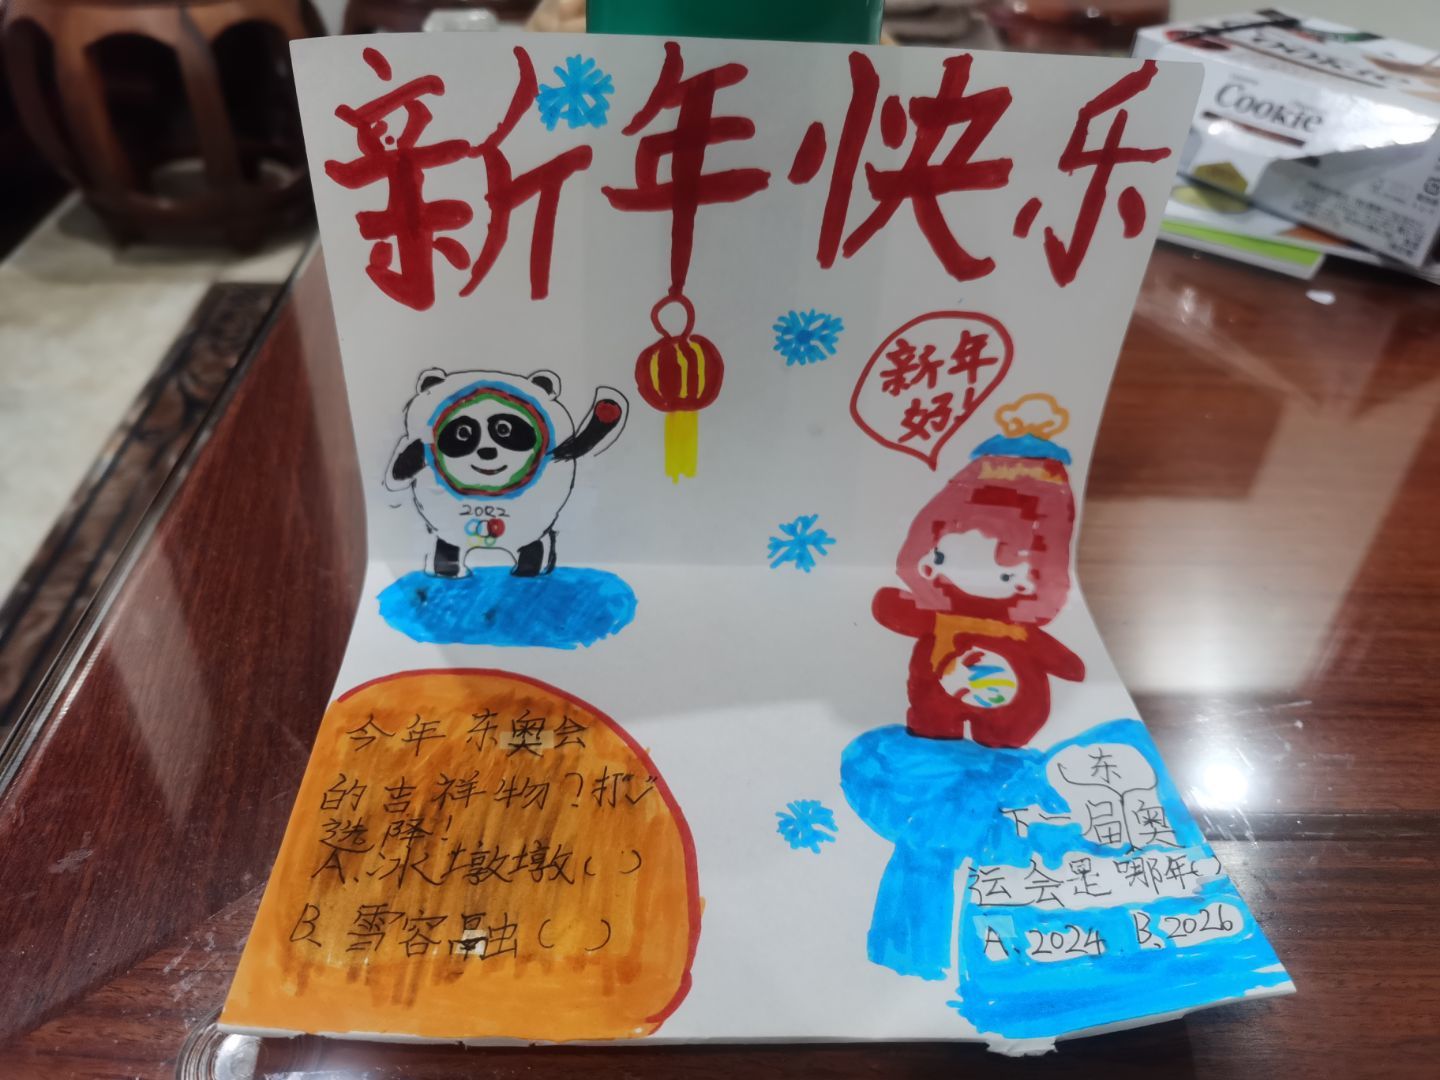 新年快乐
Cookie
新年
好!
2022
今年东奥会
的吉祥物?打"✓"
选择!
A、冰墩墩( )
B、雪容融( )
东
下一届奥
运会是哪年( )
A、2024 B、2026